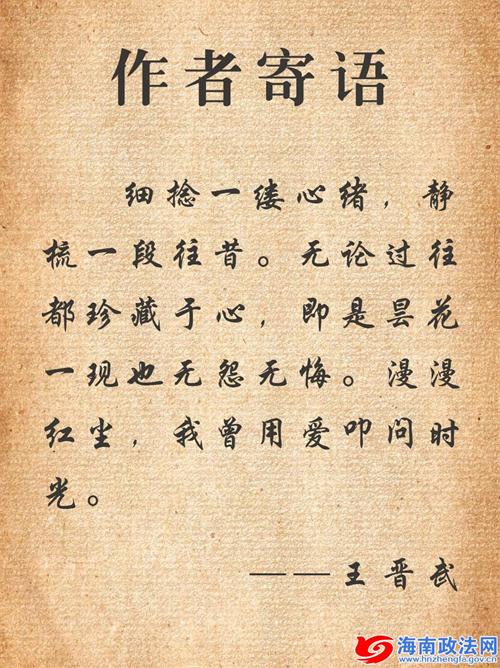 作者寄语
细捻一缕心绪，静
梳一段往昔。无论过往
都珍藏于心，即是昙花
一现也无怨无悔。漫漫
红尘，我曾用爱叩问时
光。
——王晋武
海南政法网
www.hnzhengfa.gov.cn